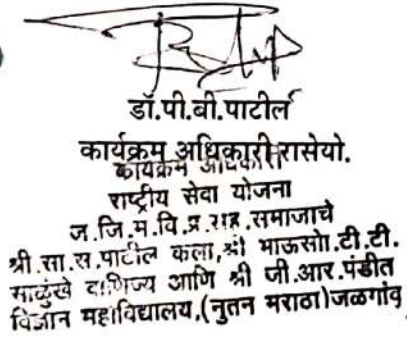 डॉ.पी.बी.पाटील
कार्यक्रम अधिकारी रासेयो.
कार्यक्रम अधिकारी
राष्ट्रीय सेवा योजना
ज.जि.म.वि.प्र.सह.समाजाचे
श्री.सा.स.पाटील कला,श्री भाऊसो.टी.टी.
साळुंखे वाणिज्य आणि श्री जी.आर.पंडीत
विज्ञान महाविद्यालय,(नुतन मराठा)जळगांव